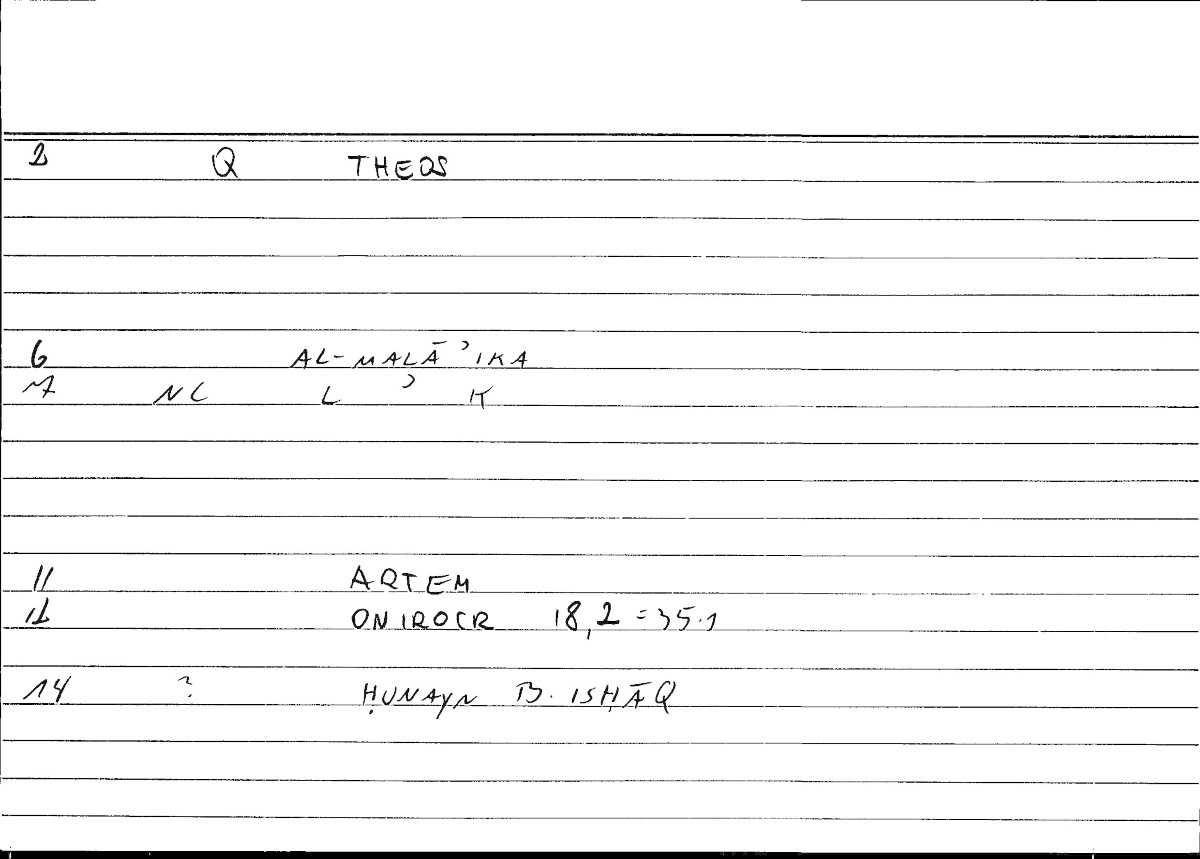 2 Q THEOS
6 AL-MALĀʾIKA
7 NL L ʾ K
11 ARTEM
12 ONIROCR 18,2 = 35.1
14 ? ḤUNAYN B. ISḤĀQ